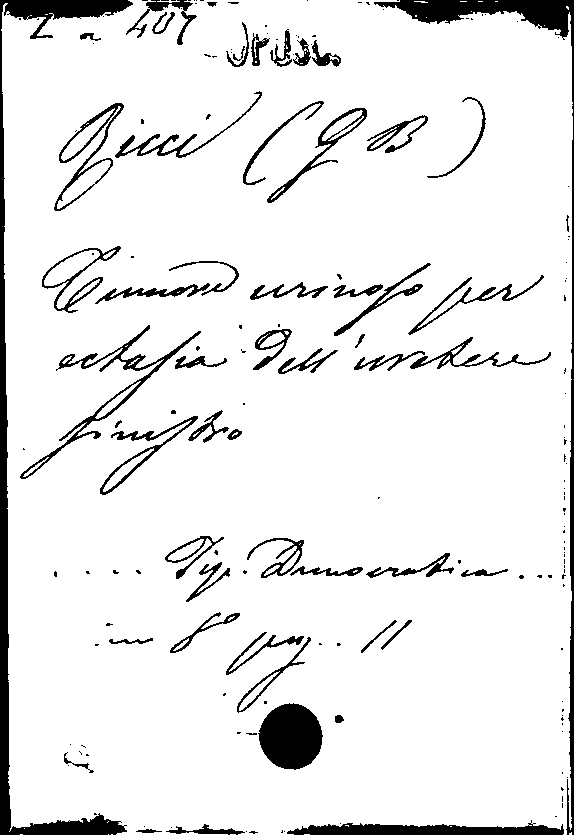 L a 407
Ricci (G B)
Tumore urinoso per
ectasia dell'uretere
sinistro
.... Tip. Democratica ...
in 8º pag. 11